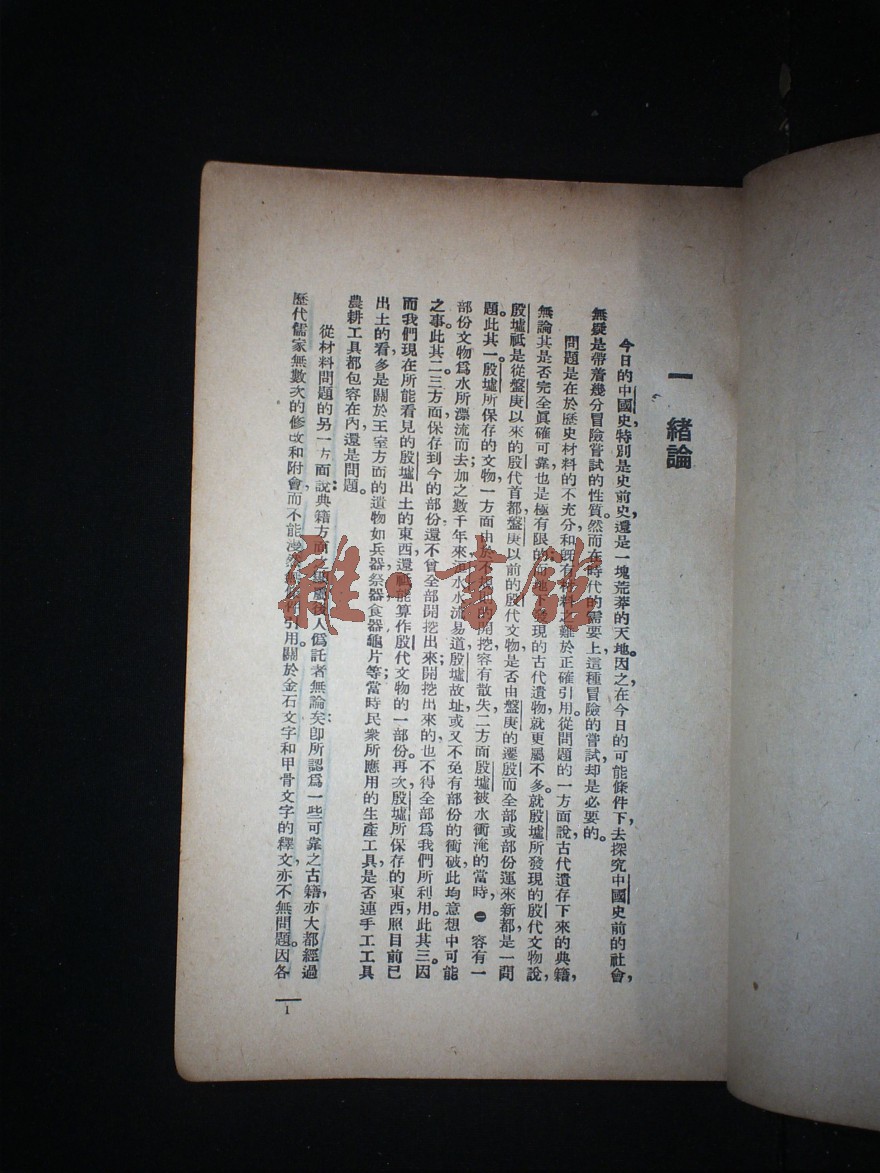 一 緒論
今日的中國史，特別是史前史，還是一塊荒莽的天地。因之在今日的可能條件下，去探究中國史前的社會，
無疑是帶着幾分冒險嘗試的性質。然而在時代的需要上，這種冒險的嘗試，却是必要的。
問題是在於歷史材料的不充分和旣有材料之難於正確引用。從問題的一方面說，古代遺存下來的典籍，
無論其是否完全眞確可靠，也是極有限的；而地下發現的古代遺物，就更屬不多。就殷墟所發現的殷代文物說，
殷墟祇是從盤庚以來的殷代首都，盤庚以前的殷代文物，是否由盤庚的遷殷而全部或部份運來新都，都是一問
題。此其一。殷墟所保存的文物，一方面由於不規則的開挖，容有散失，二方面殷墟被水衝淹的當時，容有一
部份文物爲水所漂流而去；加之數千年來洹水水流易道，殷墟故址或又不免有部份的衝破，此均意想中可能
之事。此其二。三方面保存到今的部份，還不曾全部開挖出來；開挖出來的也不得全部爲我們所利用。此其三。因
而我們現在所能看見的殷墟出土的東西，還祇能算作殷代文物的一部份。再次，殷墟所保存的東西，照目前已
出土的看，多是關於王室方面的遺物，如兵器祭器食器龜片等；當時民衆所應用的生產工具，是否連手工工具
農耕工具都包容在內，還是問題。
從材料問題的另一方面說，典籍方面之
人僞託者無論矣；卽所認爲一些可靠之古籍，亦大都經過
歷代儒家無數次的修改和附會，而不能漫然無條件引用。關於金石文字和甲骨文字的釋文，亦不無問題。因各
1
雜·書館